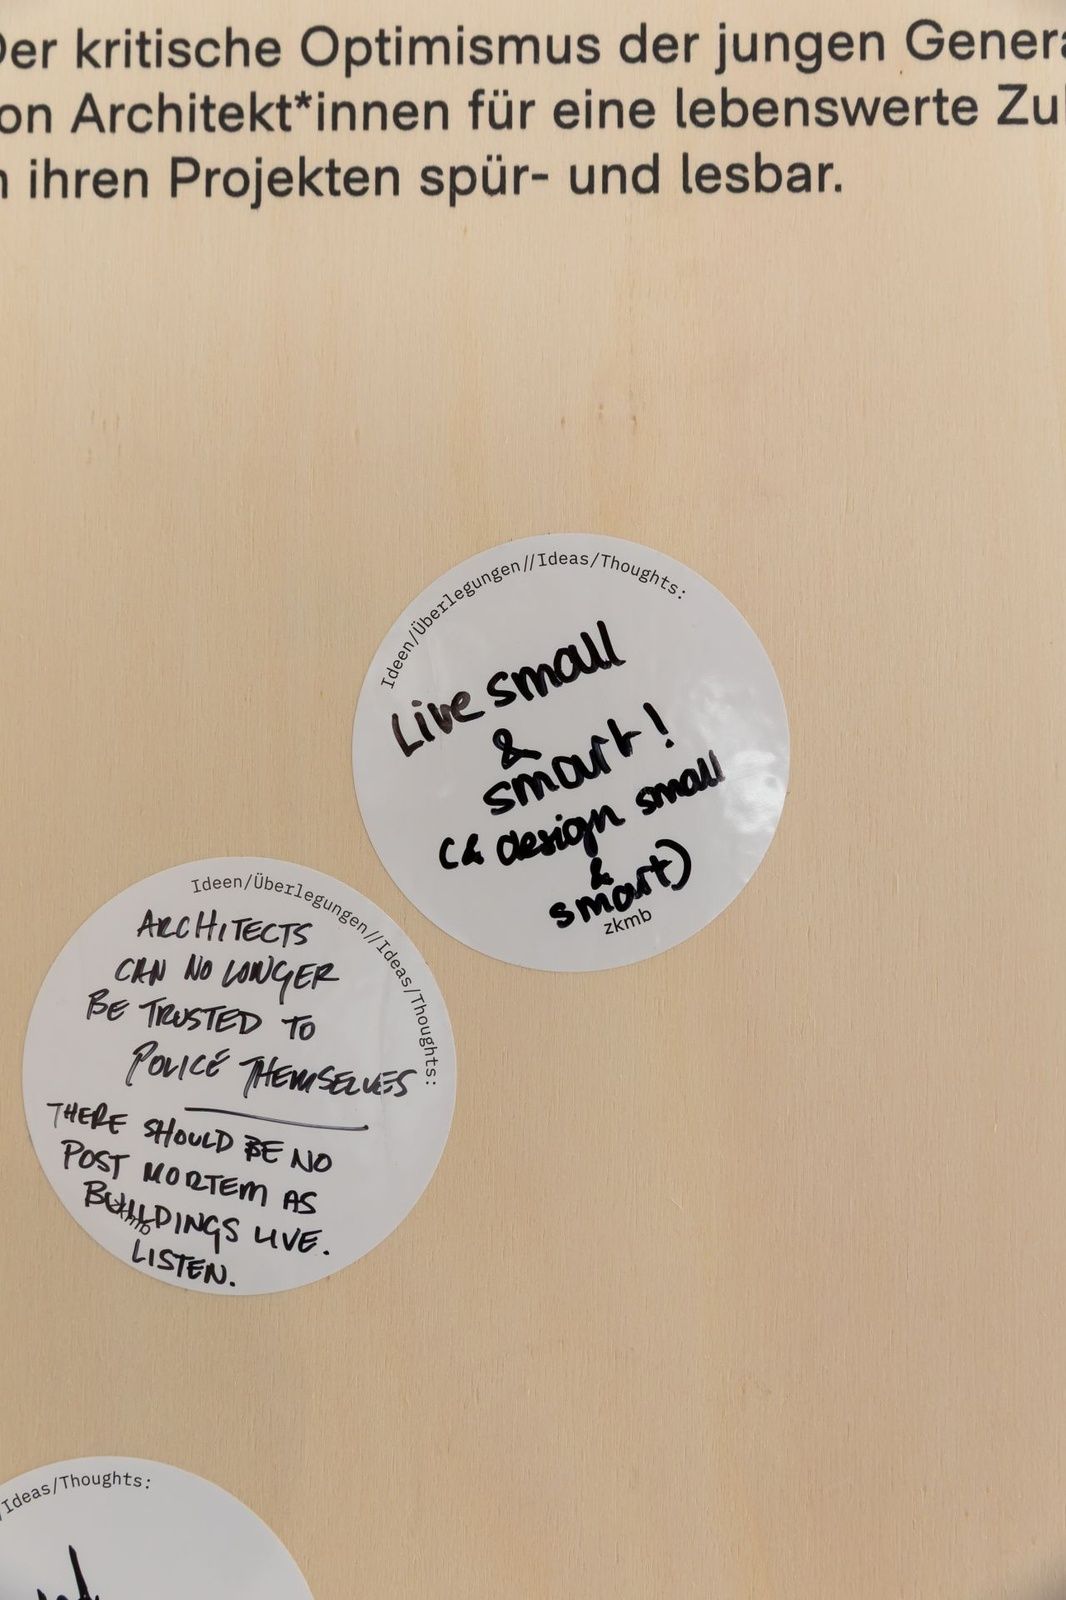 Der kritische Optimismus der jungen Genera
on Architekt*innen für eine lebenswerte Zu
n ihren Projekten spür- und lesbar.
Ideen/Überlegungen//Ideas/Thoughts:
Live small
&
smart!
(& design small
&
smart)
zkmb
Ideen/Überlegungen//Ideas/Thoughts:
ARCHITECTS
CAN NO LONGER
BE TRUSTED TO
POLICE THEMSELVES
THERE SHOULD BE NO
POST MORTEM AS
BUILDINGS LIVE.
zkmb
LISTEN.
/Ideas/Thoughts: